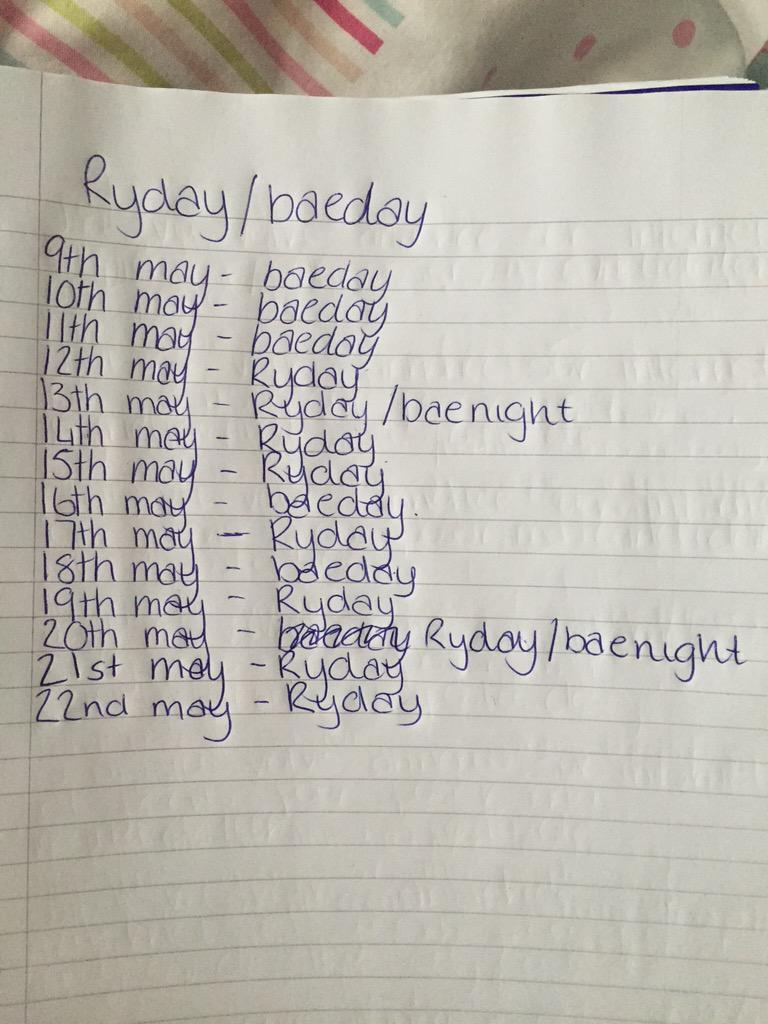 Ryday/baeday
9th may - baeday
10th may - baeday
11th may - baeday
12th may - Ryday
13th may - Ryday/baenight
14th may - Ryday
15th may - Ryday
16th may - baeday.
17th may - Ryday
18th may - baeday
19th may - Ryday
20th may - baeday Ryday/baenight
21st may - Ryday
22nd may - Ryday